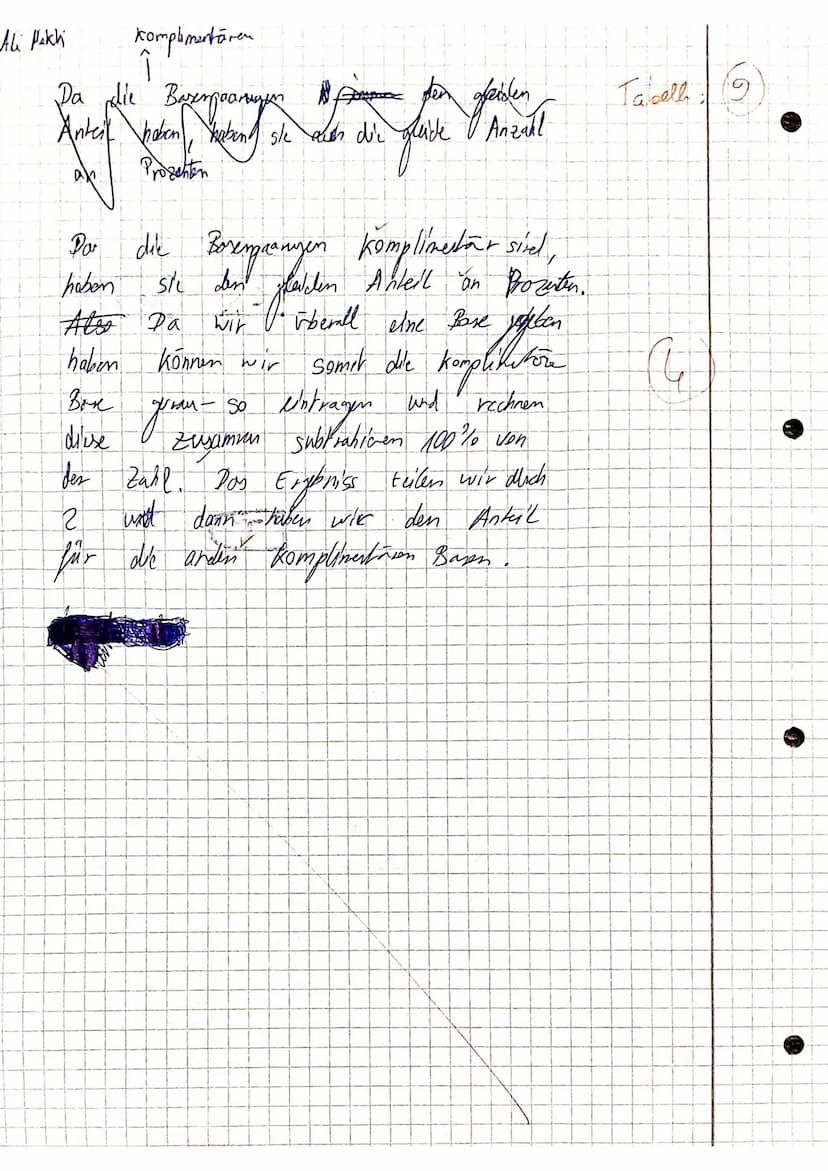 Ali
Komplimentären
Da die Basenpaarungen den gleichen
Tabelle: 9
Anteil haben, haben sie auch die gleiche Anzahl
an Prozenten
Da die Basenpaarungen komplimentär sind,
haben sie den gleichen Anteil an Prozenten.
Also Da wir überall eine Base gegeben
haben können wir somit die komplimentäre
4
Base genau so eintragen und rechnen
diese zusammen subtrahieren 100% von
der Zahl. Das Ergebniss teilen wir durch
2 und dann haben wir den Anteil
für die anderen komplimentären Basen.